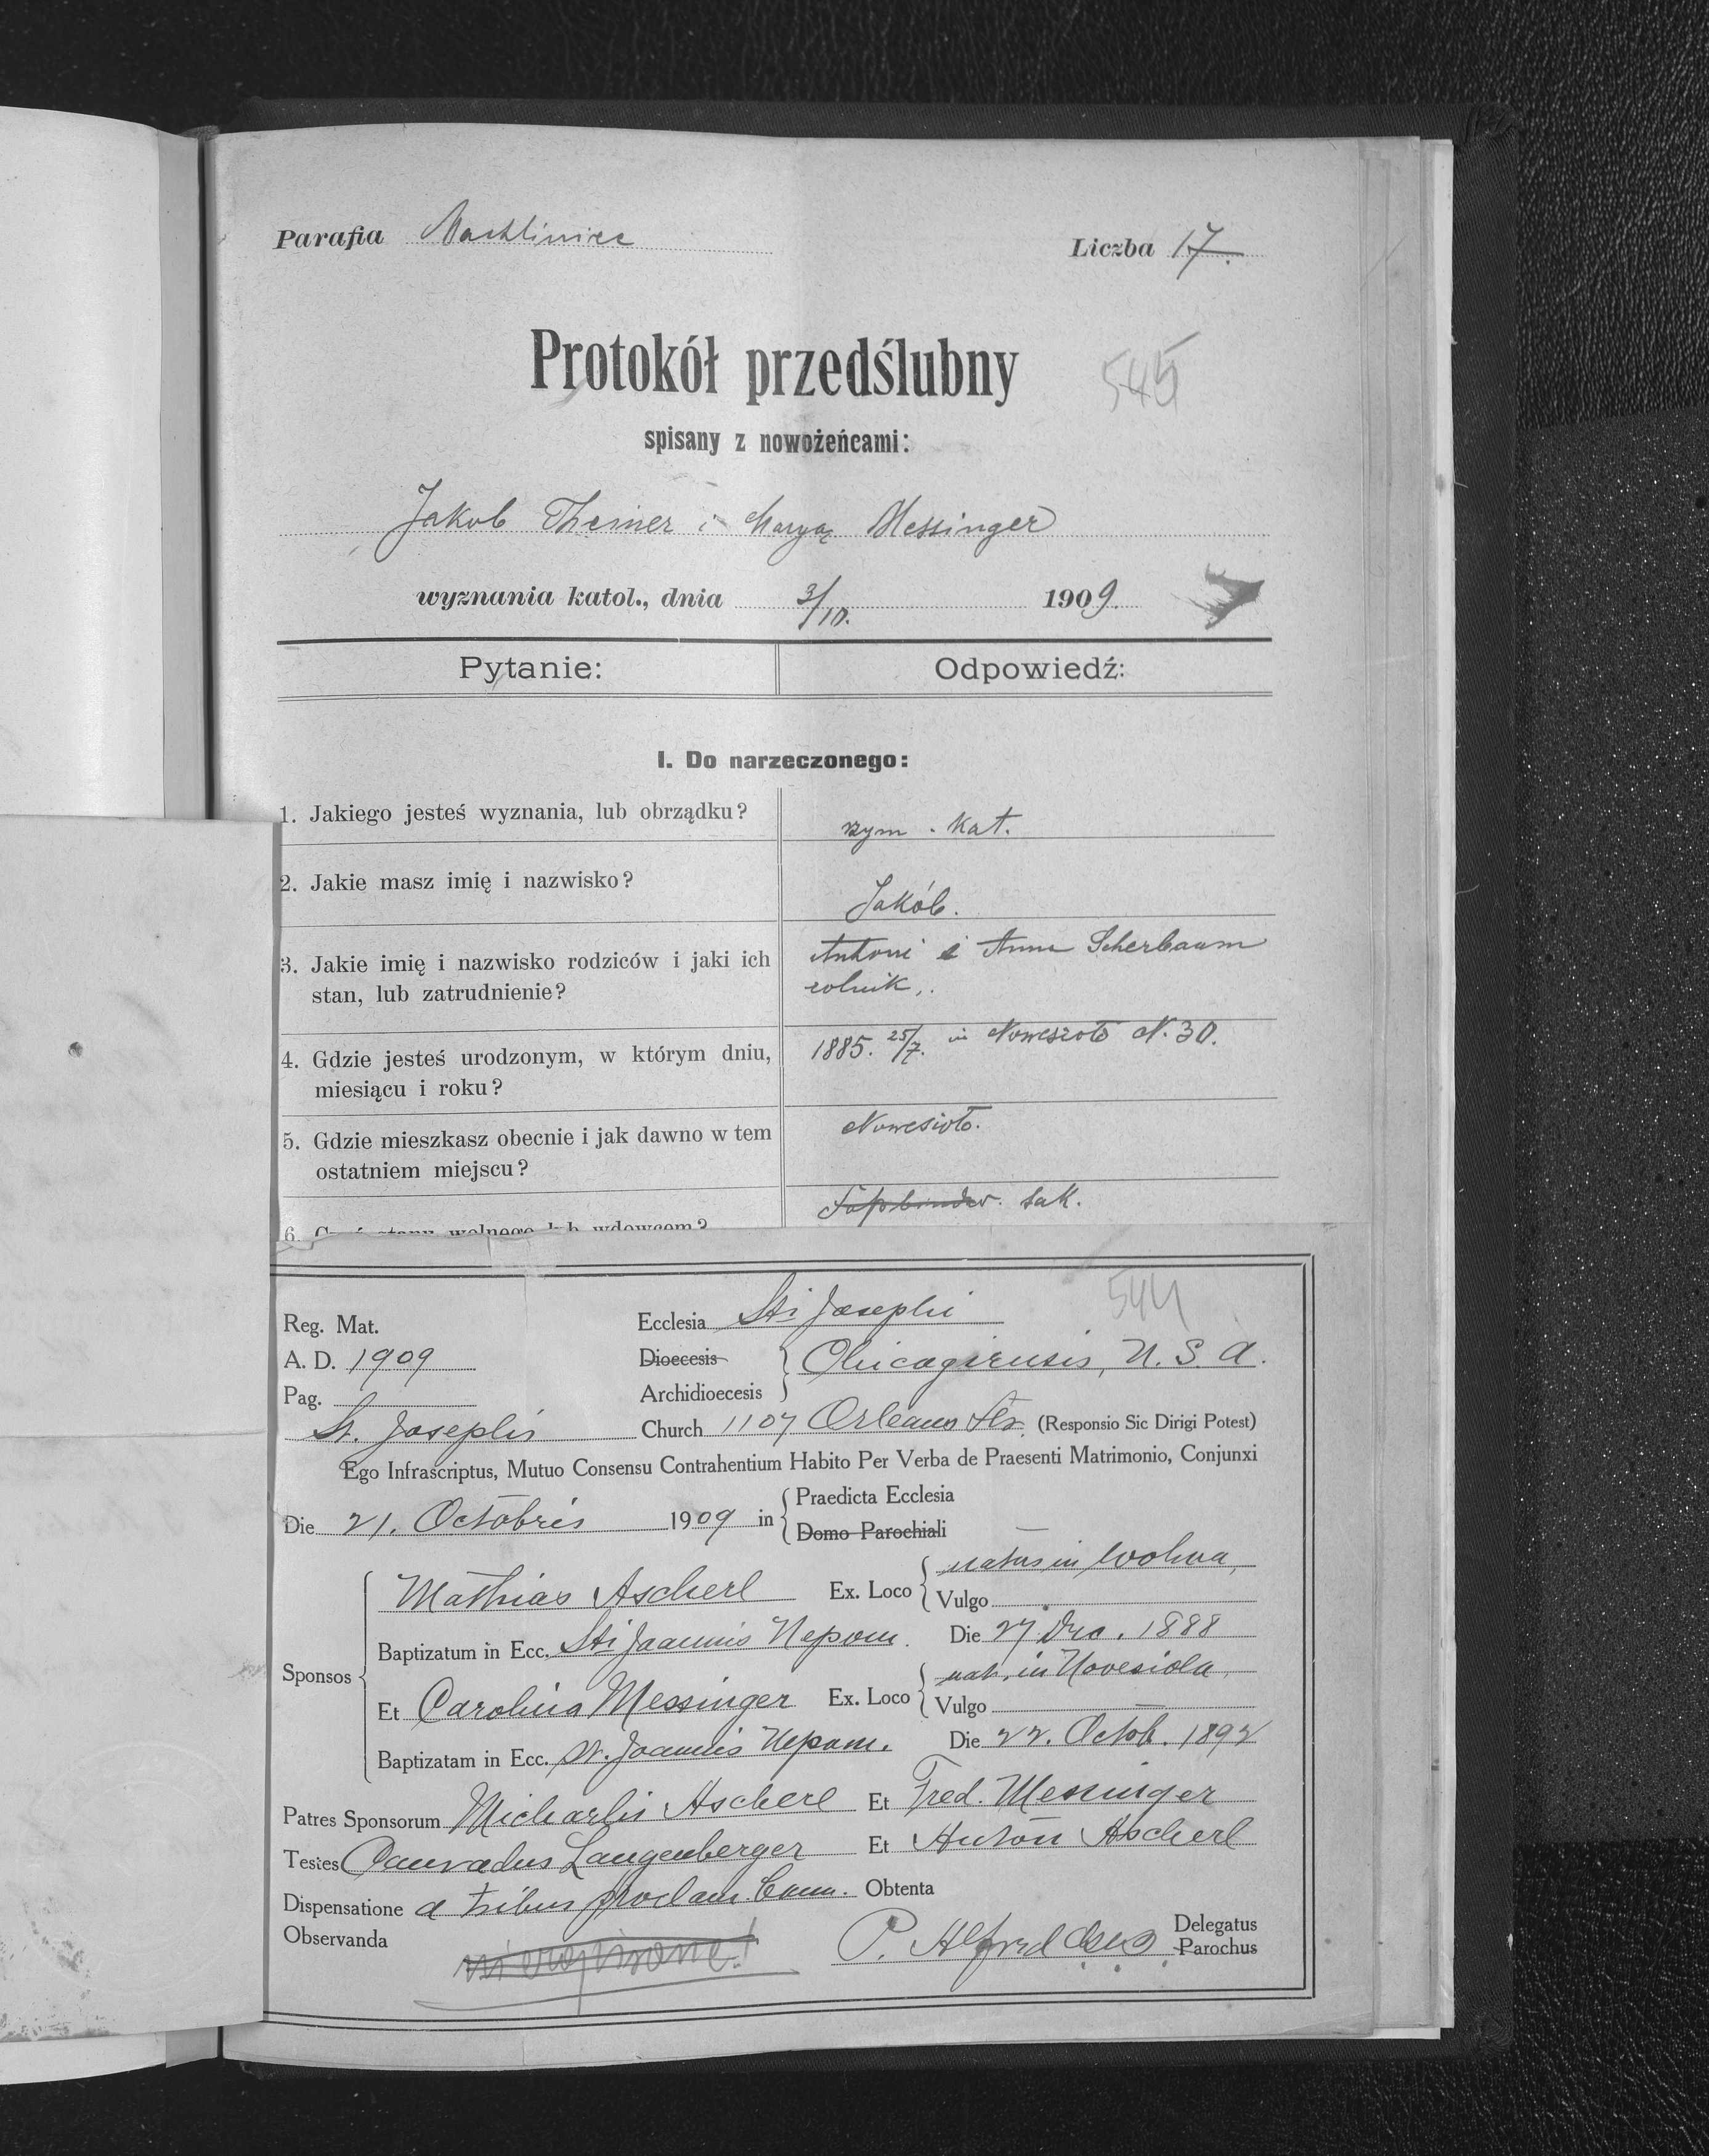 Parafia Machliniec
Liczba 17.
Protokół przedślubny
545
spisany z nowożeńcami:
Jakob Theiner i Maryą Messinger
wyznania katol., dnia 3/10. 1909.
Pytanie:
Odpowiedź:
I. Do narzeczonego:
1. Jakiego jesteś wyznania, lub obrządku?
rzym. kat.
2. Jakie masz imię i nazwisko?
Jakób.
3. Jakie imię i nazwisko rodziców i jaki ich
stan, lub zatrudnienie?
Antoni i Anna Scherbaum
rolnik.
4. Gdzie jesteś urodzonym, w którym dniu,
miesiącu i roku?
1885. 25/7. in Nowesioło N. 30.
5. Gdzie mieszkasz obecnie i jak dawno w tem
ostatniem miejscu?
Nowesioło.
6. stanu wolnego lub wdowcem?
tak.
544
Reg. Mat.
Ecclesia Sti Josephi
A. D. 1909
Dioecesis
Archidioecesis
Chicagiensis, U. S. A.
Pag.
St. Josephs Church 1107 Orleans Str. (Responsio Sic Dirigi Potest)
Ego Infrascriptus, Mutuo Consensu Contrahentium Habito Per Verba de Praesenti Matrimonio, Conjunxi
Die 21. Octobris 1909 in
Praedicta Ecclesia
Domo Parochiali
Sponsos
Mathias Ascherl Ex. Loco natus in Wolwa,
Vulgo
Baptizatum in Ecc. Sti Joannis Nepom. Die 27. Dec. 1888
Et Carolina Messinger Ex. Loco nat. in Novesiola,
Vulgo
Baptizatam in Ecc. St. Joannis Nepom. Die 22. Octob. 1892
Patres Sponsorum Michaelis Ascherl Et Fred. Messinger
Testes Conradus Langenberger Et Anton Ascherl
Dispensatione a tribus proclam. Obtenta
Observanda
P. Alfred
Delegatus
Parochus